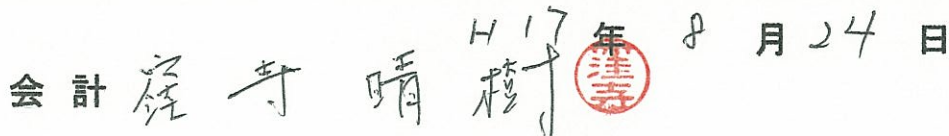 H17年8月24日
会計 窪寺晴樹
窪寺